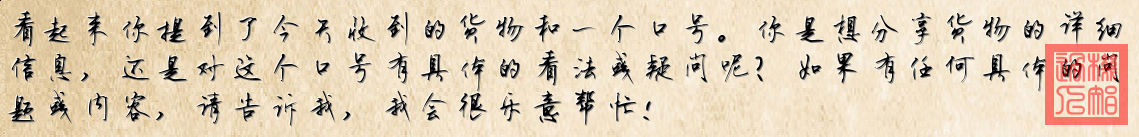 看起来你提到了今天收到的货物和一个口号。你是想分享货物的详细
信息，还是对这个口号有具体的看法或疑问呢？如果有任何具体的问
题或内容，请告诉我，我会很乐意帮忙！